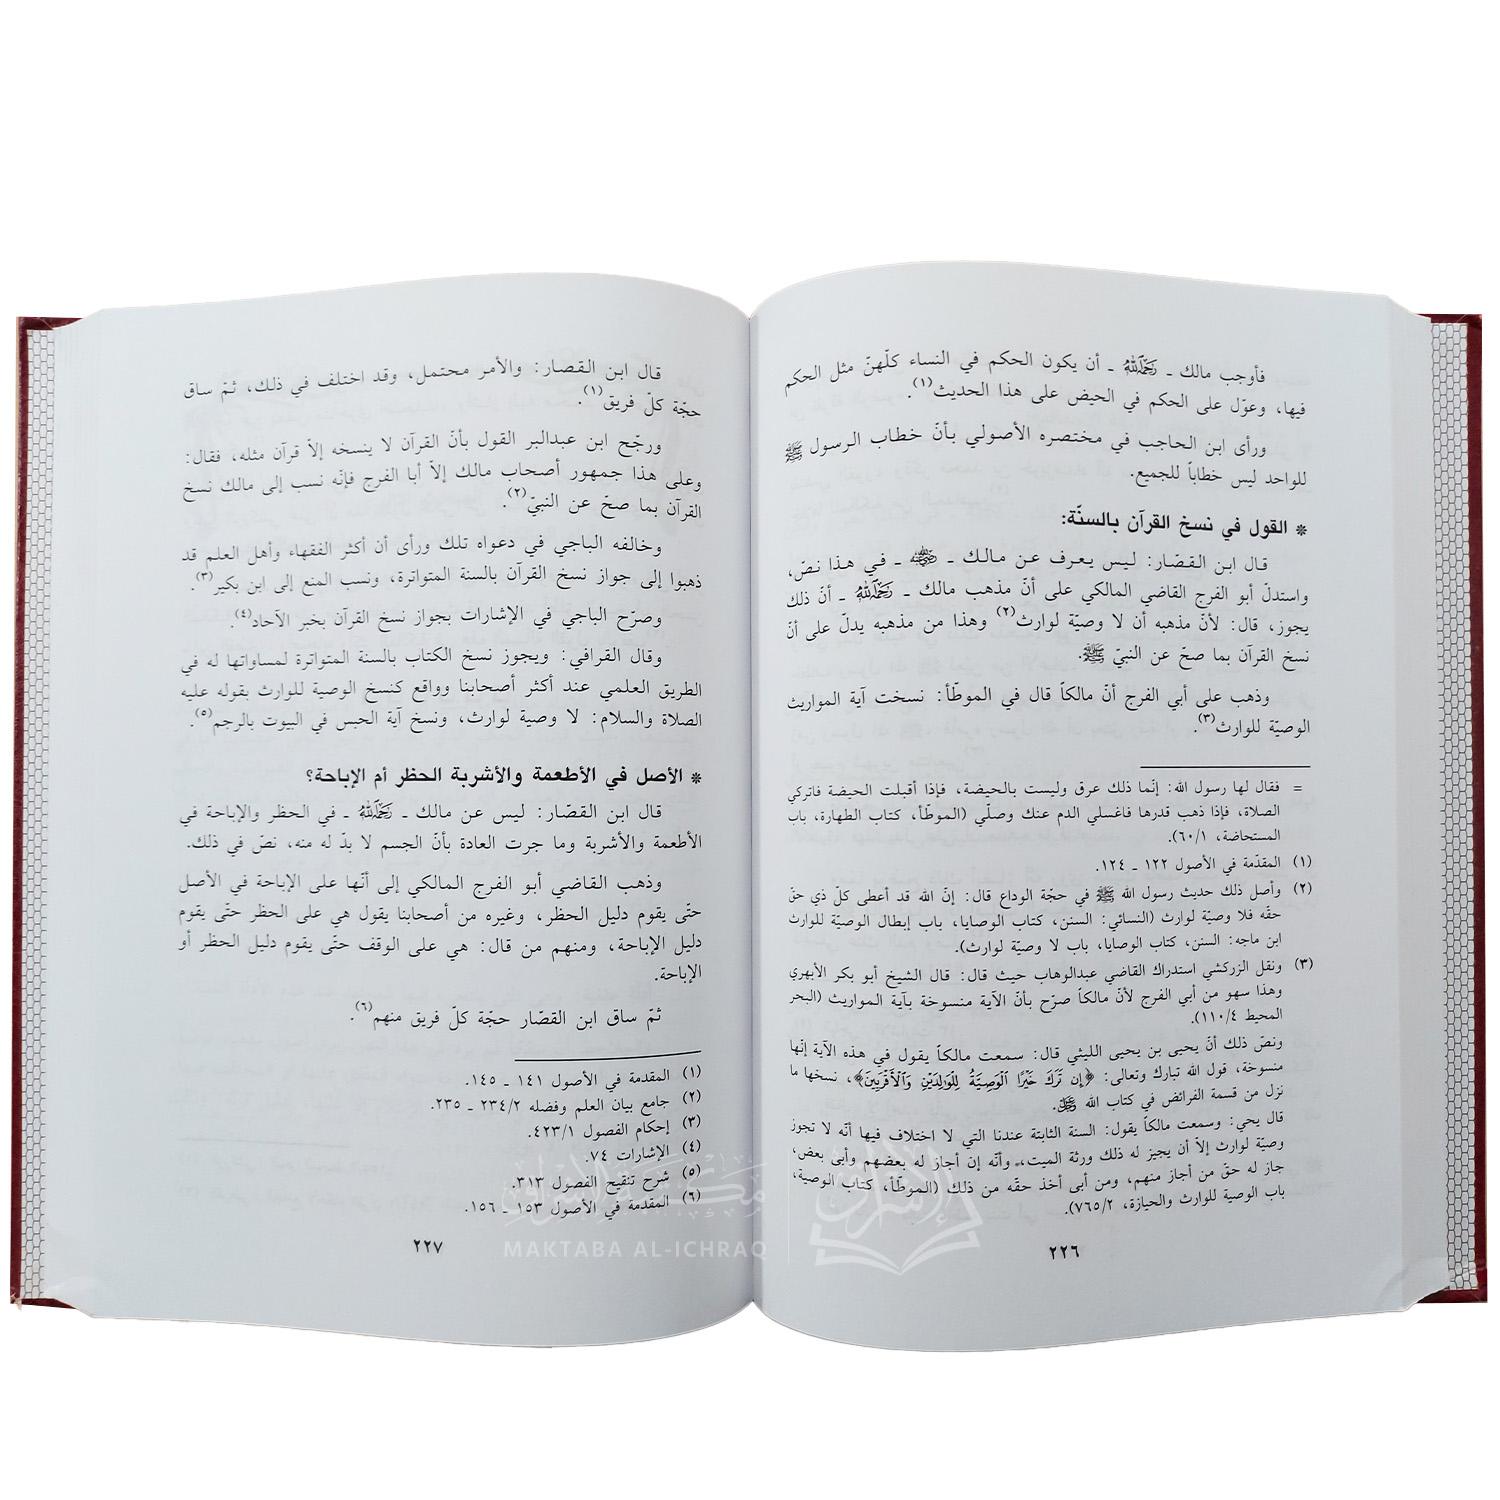 فأوجب مالك ـ رَحِمَهُ اللهُ ـ أن يكون الحكم في النساء كلّهنّ مثل الحكم
فيها، وعوّل على الحكم في الحيض على هذا الحديث(١).
ورأى ابن الحاجب في مختصره الأصولي بأنّ خطاب الرسول ﷺ
للواحد ليس خطاباً للجميع.
* القول في نسخ القرآن بالسنّة:
قال ابن القصّار: ليس يعرف عن مالك ـ ـ في هذا نصّ،
واستدلّ أبو الفرج القاضي المالكي على أنّ مذهب مالك ـ رَحِمَهُ اللهُ ـ أنّ ذلك
يجوز، قال: لأنّ مذهبه أن لا وصيّة لوارث(٢) وهذا من مذهبه يدلّ على أنّ
نسخ القرآن بما صحّ عن النبيّ ﷺ.
وذهب على أبي الفرج أنّ مالكاً قال في الموطّأ: نسخت آية المواريث
الوصيّة للوارث(٣).
= فقال لها رسول الله: إنّما ذلك عرق وليست بالحيضة، فإذا أقبلت الحيضة فاتركي
الصلاة، فإذا ذهب قدرها فاغسلي الدم عنك وصلّي (الموطّأ، كتاب الطهارة، باب
المستحاضة، ٦٠/١).
(١) المقدّمة في الأصول ١٢٢ ـ ١٢٤.
(٢) وأصل ذلك حديث رسول الله ﷺ في حجّة الوداع قال: إنّ الله قد أعطى كلّ ذي حقّ
حقه فلا وصيّة لوارث (النسائي: السنن، كتاب الوصايا، باب إبطال الوصيّة للوارث
ابن ماجه: السنن، كتاب الوصايا، باب لا وصيّة لوارث).
(٣) ونقل الزركشي استدراك القاضي عبدالوهاب حيث قال: قال الشيخ أبو بكر الأبهري
وهذا سهو من أبي الفرج لأنّ مالكاً صرّح بأنّ الآية منسوخة بآية المواريث (البحر
المحيط ١١٠/٤).
ونصّ ذلك أنّ يحيى بن يحيى الليثي قال: سمعت مالكاً يقول في هذه الآية إنّها
منسوخة، قول الله تبارك وتعالى: ﴿إِن تَرَكَ خَيْرًا الْوَصِيَّةُ لِلْوَالِدَيْنِ وَالْأَقْرَبِينَ﴾، نسخها ما
نزل من قسمة الفرائض في كتاب الله ﷻ.
قال يحي: وسمعت مالكاً يقول: السنة الثابتة عندنا التي لا اختلاف فيها أنّه لا تجوز
وصيّة لوارث إلاّ أن يجيز له ذلك ورثة الميت، وأنّه إن أجاز له بعضهم وأبى بعض،
جاز له حقّ من أجاز منهم، ومن أبى أخذ حقّه من ذلك (الموطّأ، كتاب الوصية،
باب الوصية للوارث والحيازة، ٧٦٥/٢).
٢٢٦
قال ابن القصار: والأمر محتمل، وقد اختلف في ذلك، ثمّ ساق
حجّة كلّ فريق(١).
ورجّح ابن عبدالبر القول بأنّ القرآن لا ينسخه إلاّ قرآن مثله، فقال:
وعلى هذا جمهور أصحاب مالك إلاّ أبا الفرج فإنّه نسب إلى مالك نسخ
القرآن بما صحّ عن النبيّ(٢).
وخالفه الباجي في دعواه تلك ورأى أن أكثر الفقهاء وأهل العلم قد
ذهبوا إلى جواز نسخ القرآن بالسنة المتواترة، ونسب المنع إلى ابن بكير(٣).
وصرّح الباجي في الإشارات بجواز نسخ القرآن بخبر الآحاد(٤).
وقال القرافي: ويجوز نسخ الكتاب بالسنة المتواترة لمساواتها له في
الطريق العلمي عند أكثر أصحابنا وواقع كنسخ الوصية للوارث بقوله عليه
الصلاة والسلام: لا وصية لوارث، ونسخ آية الحبس في البيوت بالرجم(٥).
* الأصل في الأطعمة والأشربة الحظر أم الإباحة؟
قال ابن القصّار: ليس عن مالك ـ رَحِمَهُ اللهُ ـ في الحظر والإباحة في
الأطعمة والأشربة وما جرت العادة بأنّ الجسم لا بدّ له منه، نصّ في ذلك.
وذهب القاضي أبو الفرج المالكي إلى أنّها على الإباحة في الأصل
حتّى يقوم دليل الحظر، وغيره من أصحابنا يقول هي على الحظر حتّى يقوم
دليل الإباحة، ومنهم من قال: هي على الوقف حتّى يقوم دليل الحظر أو
الإباحة.
ثمّ ساق ابن القصّار حجّة كلّ فريق منهم(٦).
(١) المقدمة في الأصول ١٤١ ـ ١٤٥.
(٢) جامع بيان العلم وفضله ٢٣٤/٢ ـ ٢٣٥.
(٣) إحكام الفصول ٤٢٣/١.
(٤) الإشارات ٧٤.
(٥) شرح تنقيح الفصول ٣١٣.
(٦) المقدمة في الأصول ١٥٣ ـ ١٥٦.
٢٢٧
مكتبة الإشراق
MAKTABA AL-ICHRAQ
الإشراق